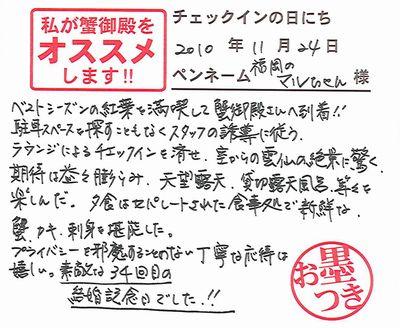 私が蟹御殿を
オススメ
します!!
チェックインの日にち
2010 年 11 月 24 日
ペンネーム 福岡の マルちゃん 様
ベストシーズンの紅葉を満喫して蟹御殿さんへ到着!!
駐車スペースを探すこともなくスタッフの誘導に従う。
ラウンジによるチェックインを済せ、室からの雲仙の絶景に驚く。
期待は益々膨らみ、天望露天、貸切露天風呂、等々を
楽しんだ。夕食はセパレートされた食事処で新鮮な
蟹、カキ、刺身を堪能した。
プライバシーを邪魔することのない丁寧な応待は
嬉しい。素敵な34回目の
結婚記念日でした.!!
お墨つき